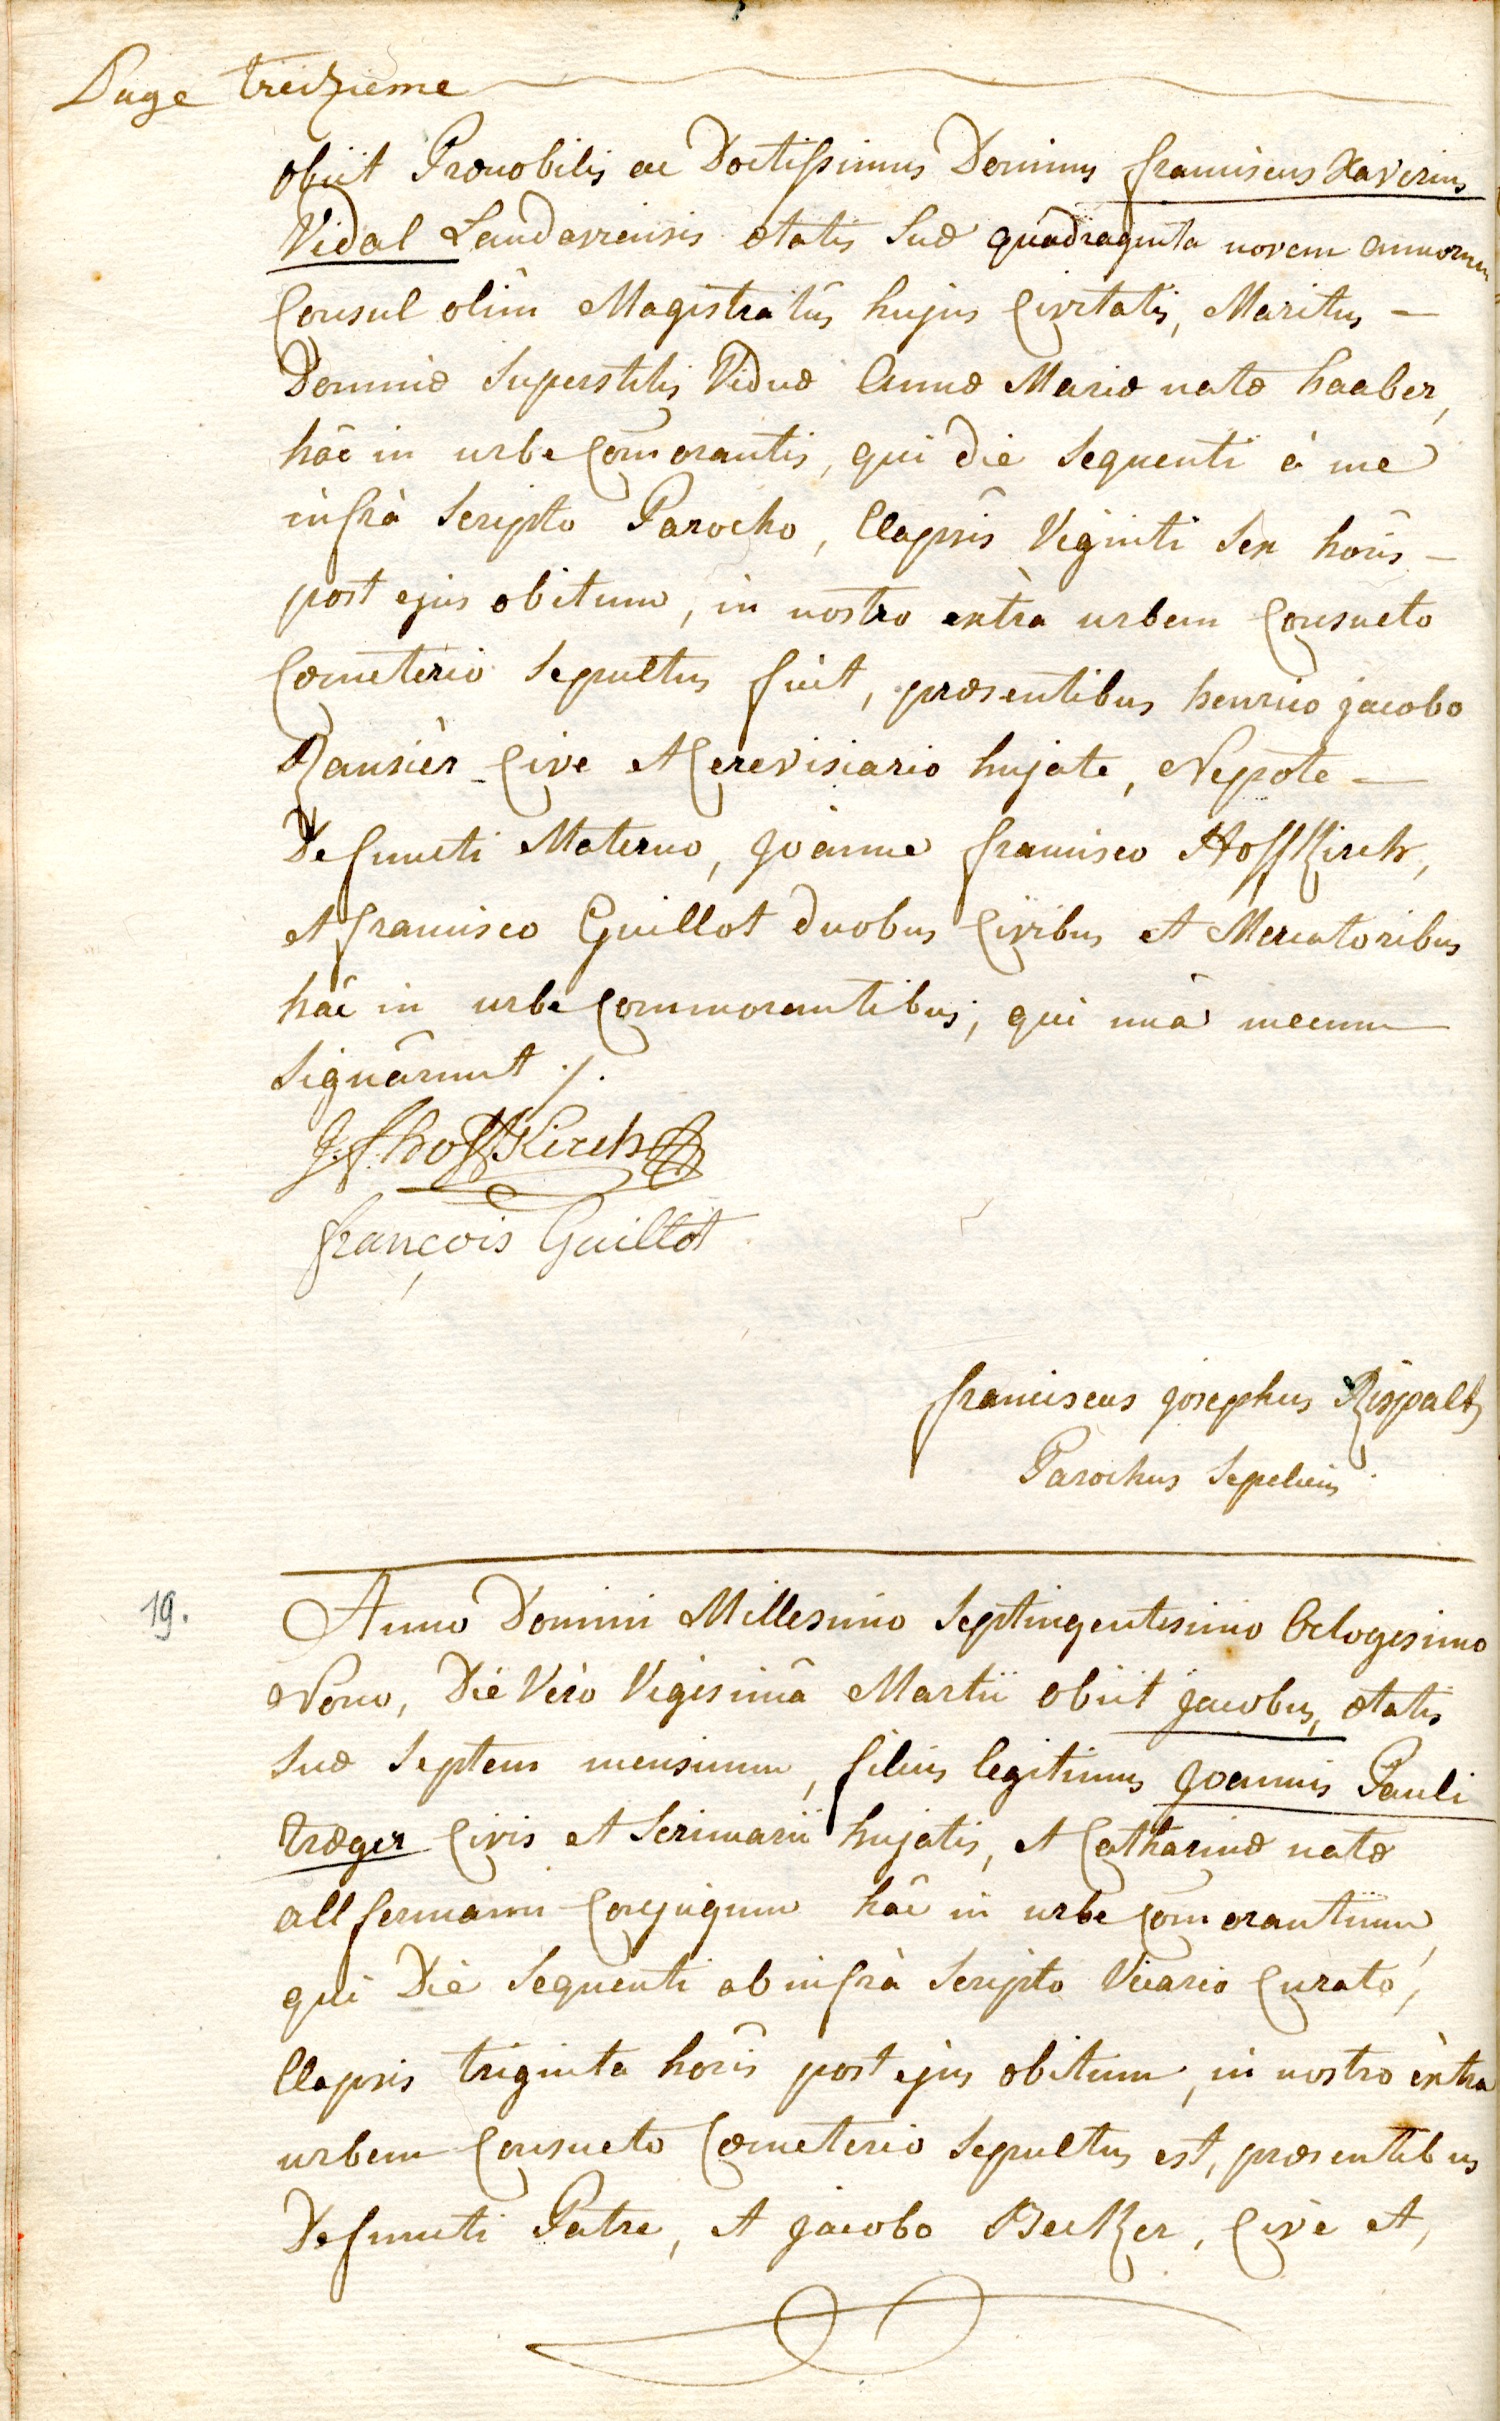 Page treizieme
obiit Prænobilis ac Doctissimus Dominus franciscus Xaverius
Vidal Landaviensis ætatis suæ quadraginta novem annorum
Consul olim Magistratûs hujus Civitatis, Maritus —
Dominæ superstitis Viduæ Annæ Mariæ natæ haaber,
hâc in urbe com̄orantis, qui die sequenti à me
infrà scripto Parocho, Elapsis Viginti sex horis —
post ejus obitum, in nostro extrà urbem consueto
Cœmeterio sepultus fuit, præsentibus henrico jacobo
Cive et Cerevisiario hujate, Nepote —
Defuncti Materno, joanne francisco Hoffkirch,
et francisco Guillot duobus Civibus et Mercatoribus
hâc in urbe Commorantibus, qui unà mecum
signârunt ./.
J. f. hoffKirch
françois Guillot
franciscus josephus Rispalt
Parochus sepeliens
19. Anno Domini Millesimo septingentesimo Octogesimo
Nono, Die Verò Vigesimâ Martii obiit jacobus, ætatis
suæ septem mensium, filius legitimus joannis Pauli
træger Civis et scriniarii hujatis, et Catharinæ natæ
allfermann Conjugum hâc in urbe com̄orantium,
qui Die sequenti ab infrà scripto Vicario Curato,
Elapsis triginta horis post ejus obitum, in nostro èxtra
urbem Consueto Cœmeterio sepultus est, præsentibus
Defuncti Patre, et jacobo Becker, Cive et,